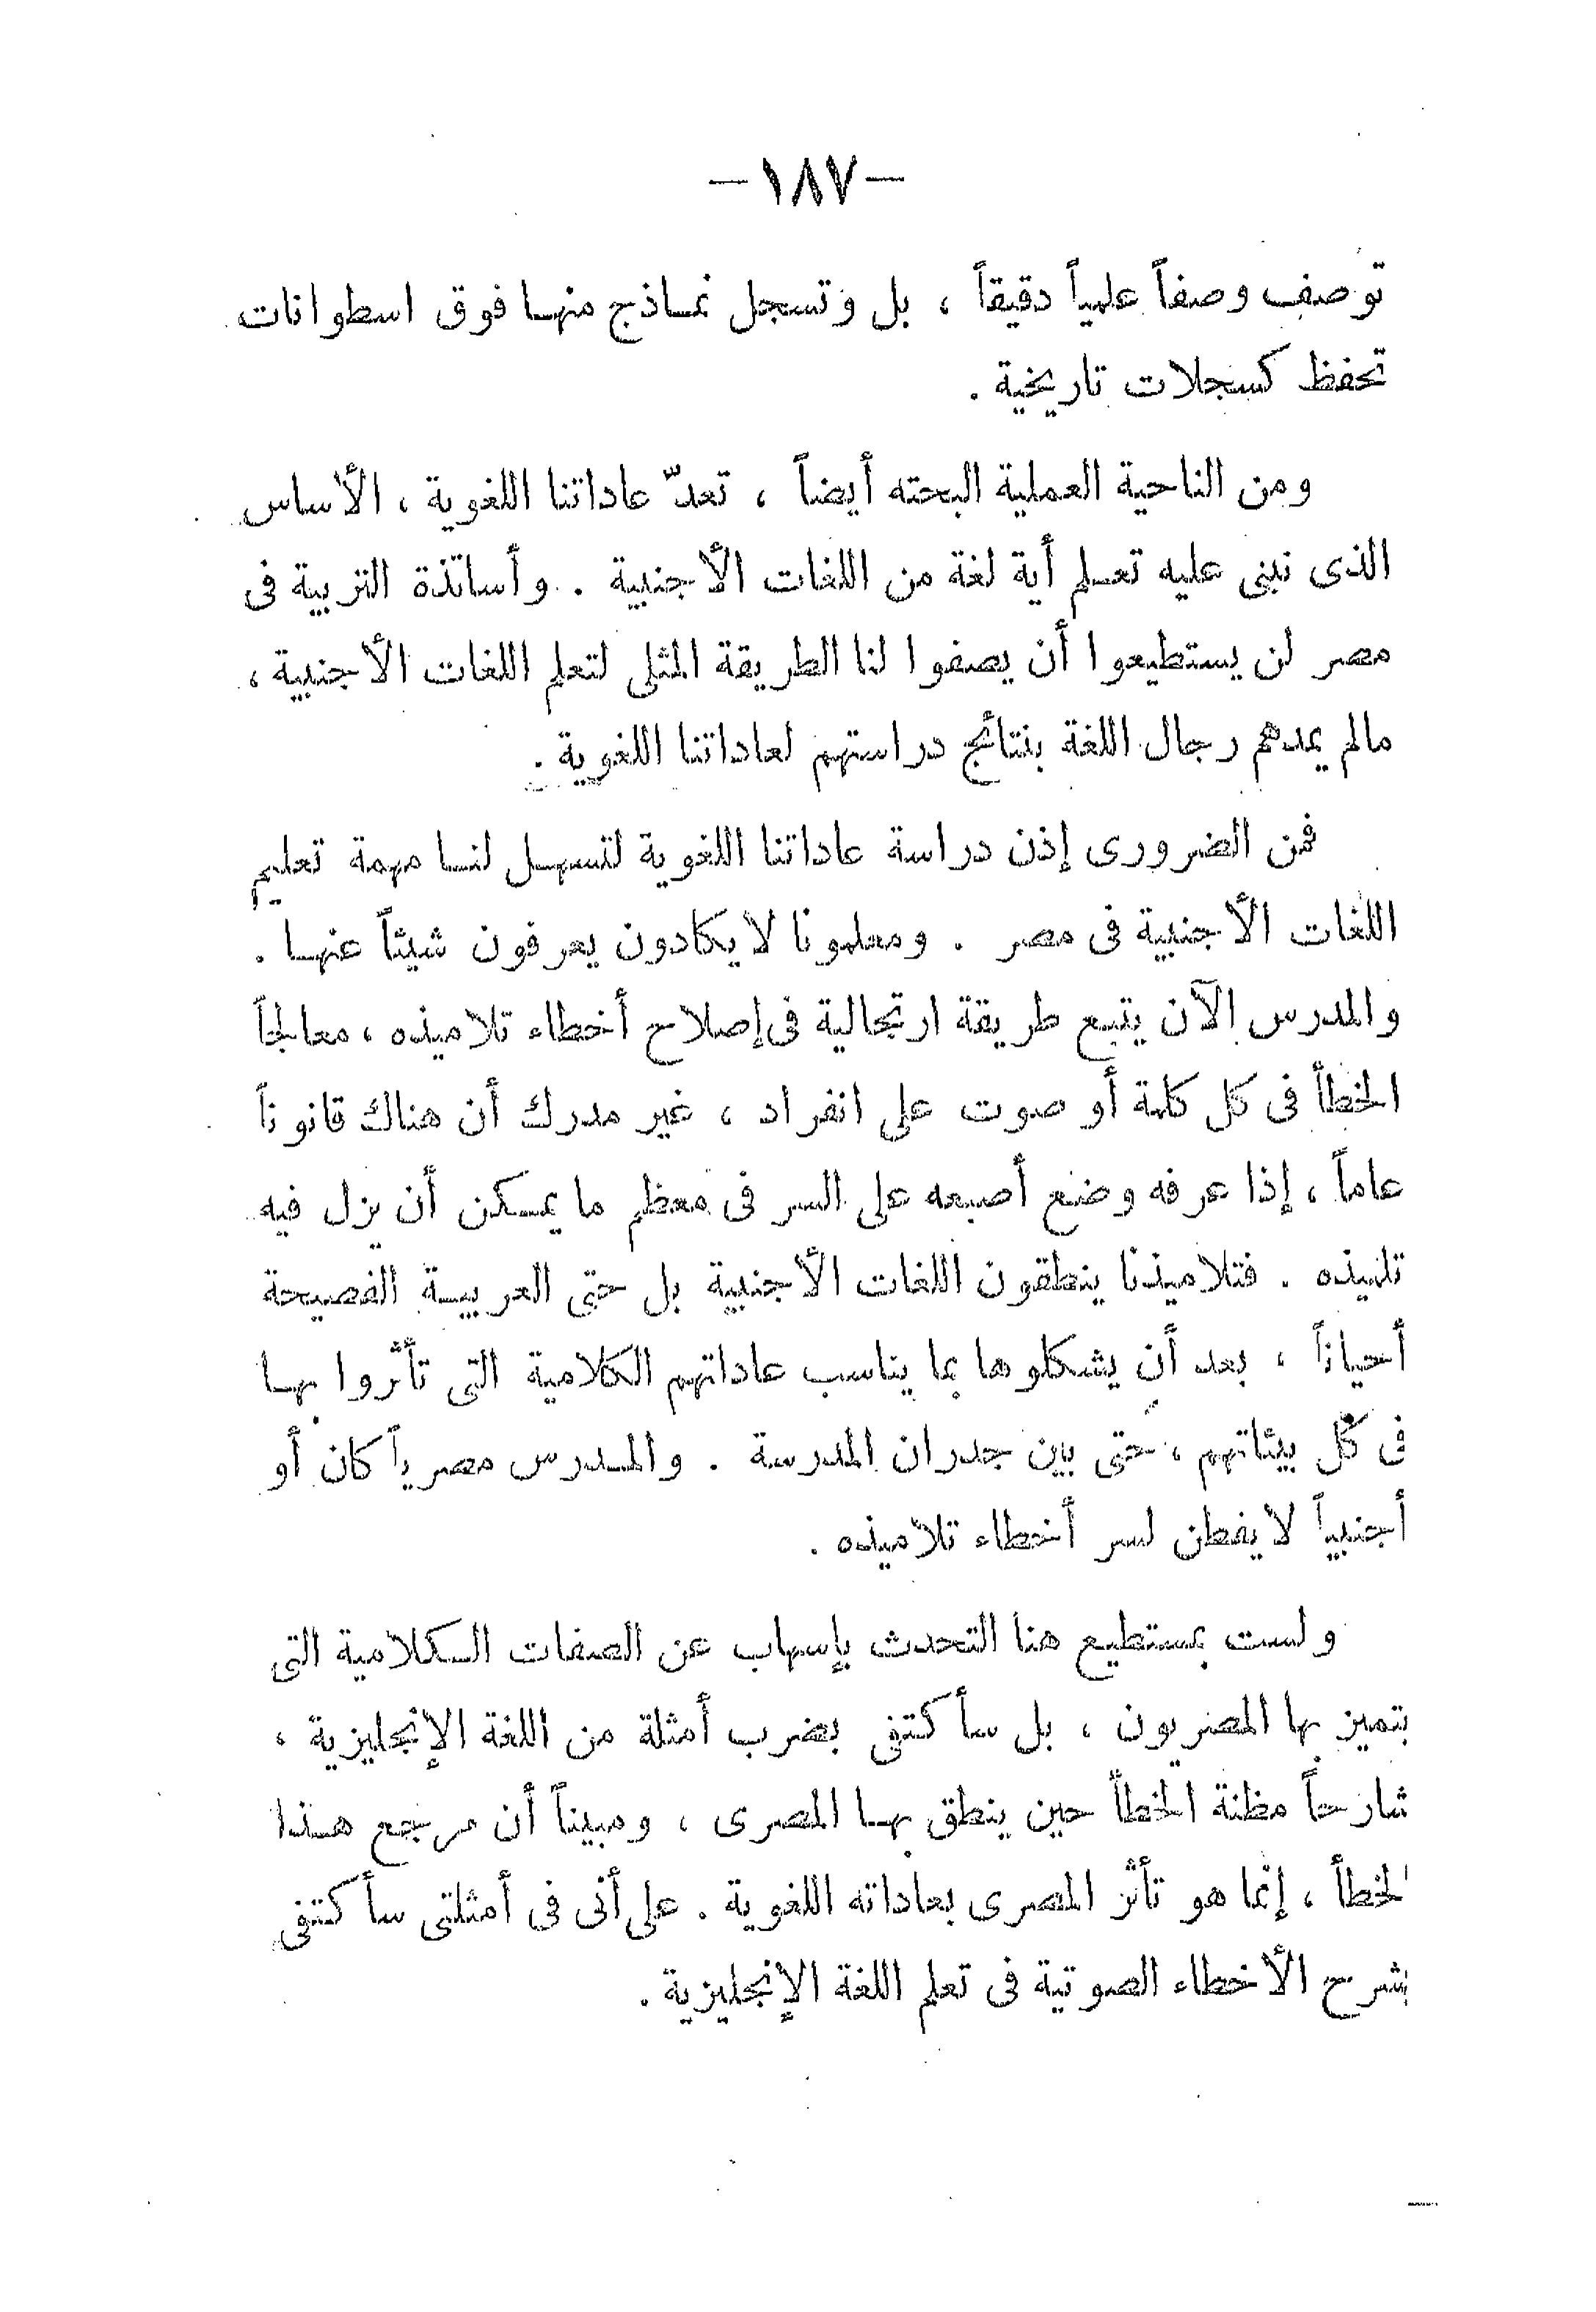 — ١٨٧ —
توصف وصفاً علمياً دقيقاً ، بل وتسجل نماذج منها فوق اسطوانات
تحفظ كسجلات تاريخية .
ومن الناحية العملية البحته أيضاً ، تعدّ عاداتنا اللغوية ، الأساس
الذى نبنى عليه تعلم أية لغة من اللغات الأجنبية . وأساتذة التربية فى
مصر لن يستطيعوا أن يصفوا لنا الطريقة المثلى لتعلم اللغات الأجنبية ،
مالم يمدهم رجال اللغة بنتائج دراستهم لعاداتنا اللغوية .
فمن الضرورى إذن دراسة عاداتنا اللغوية لتسهل لنا مهمة تعليم
اللغات الأجنبية فى مصر . ومعلمونا لا يكادون يعرفون شيئاً عنها .
والمدرس الآن يتبع طريقة ارتجالية فى إصلاح أخطاء تلاميذه ، معالجاً
الخطأ فى كل كلمة أو صوت على انفراد ، غير مدرك أن هناك قانوناً
عاماً ، إذا عرفه وضع أصبعه على السر فى معظم ما يمكن أن يزل فيه
تلميذه . فتلاميذنا ينطقون اللغات الأجنبية بل حتى العربية الفصيحة
أحياناً ، بعد أن يشكلوها بما يناسب عاداتهم الكلامية التى تأثروا بها
فى كل بيئاتهم ، حتى بين جدران المدرسة . والمدرس مصرياً كان أو
أجنبياً لا يفطن لسر أخطاء تلاميذه .
ولست بمستطيع هنا التحدث بإسهاب عن الصفات الكلامية التى
يتميز بها المصريون ، بل سأكتفى بضرب أمثلة من اللغة الإنجليزية ،
شارحاً مظنة الخطأ حين ينطق بها المصرى ، ومبيناً أن مرجع هذا
الخطأ ، إنما هو تأثر المصرى بعاداته اللغوية . على أنى فى أمثلتى سأكتفى
بشرح الأخطاء الصوتية فى تعلم اللغة الإنجليزية .